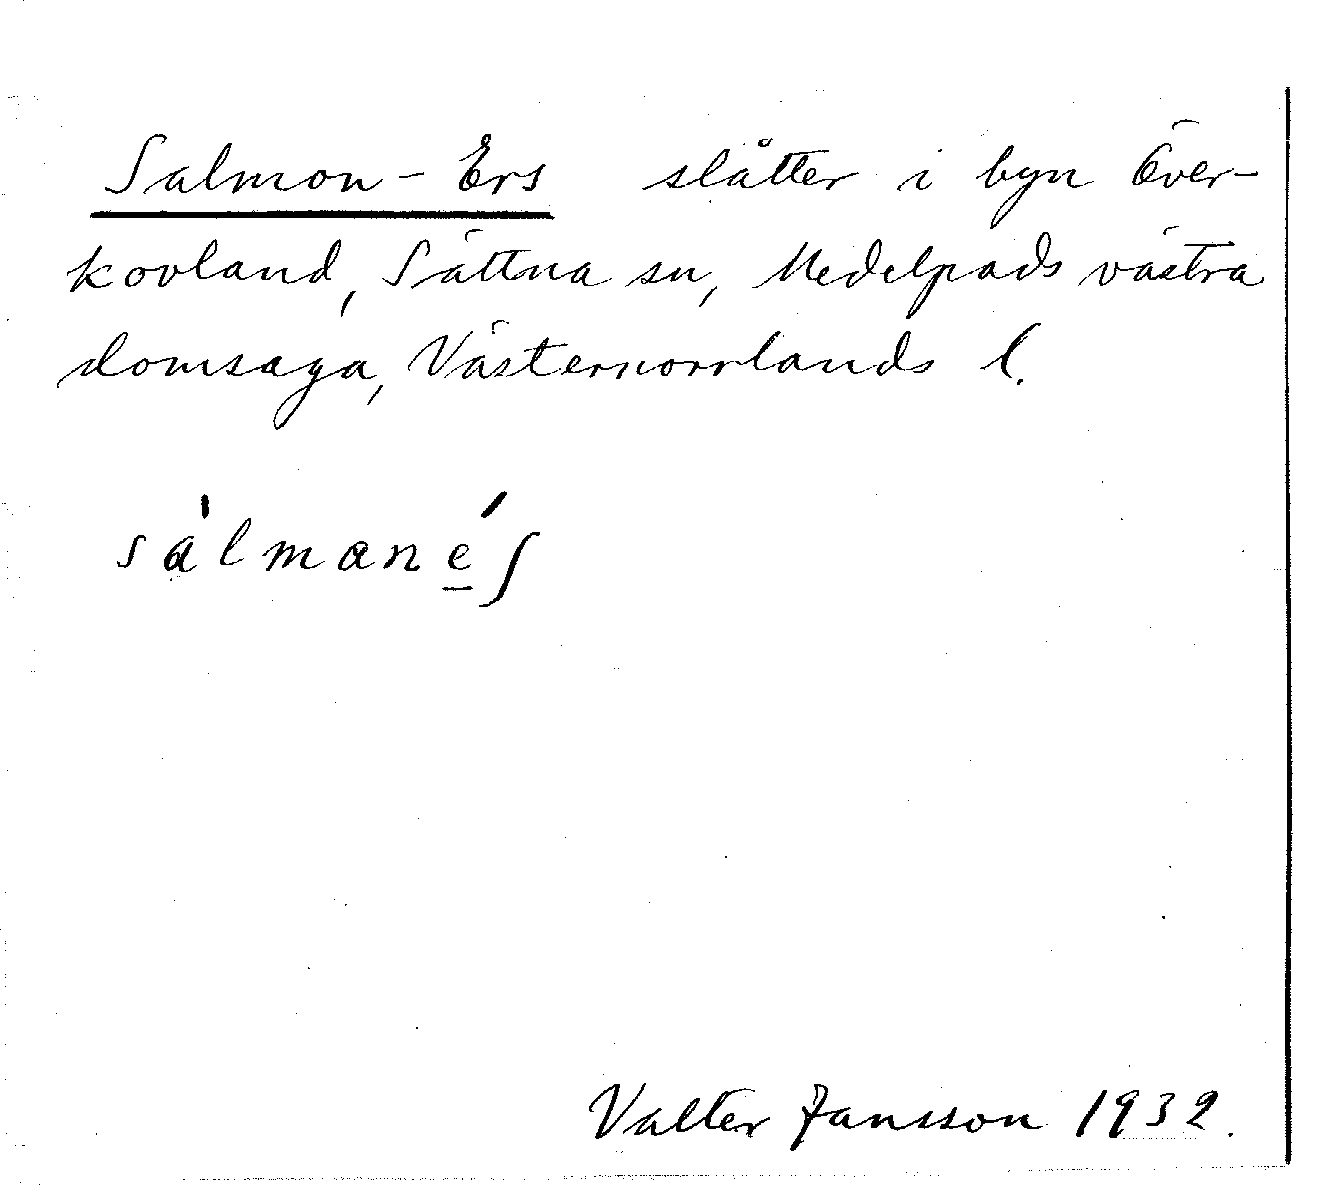 Salmon-Ers slåtter i byn Över-
kovland, Sättna sn, Medelpads västra
domsaga, Västernorrlands l.
sálmané̱ʃ
Valter Jansson 1932.